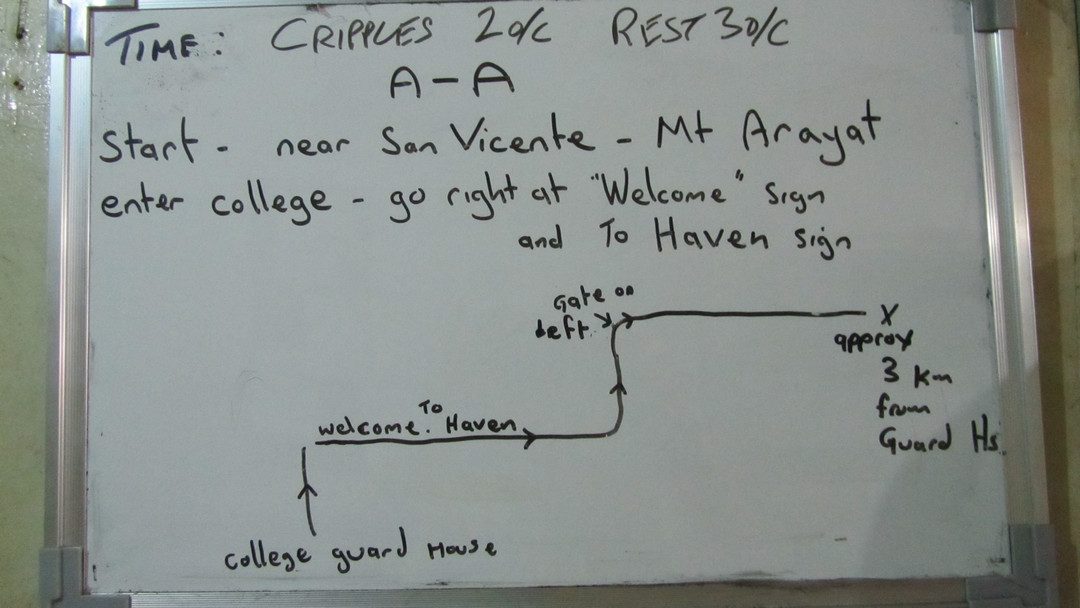 TIME: CRIPPLES 2 o/c REST 3 o/c
A-A
Start - near San Vicente - Mt Arayat
enter college - go right at "Welcome" sign
and To Haven sign
Gate on
Left
X
approx
3 km
from
Guard Hs.
welcome. To Haven
college guard House